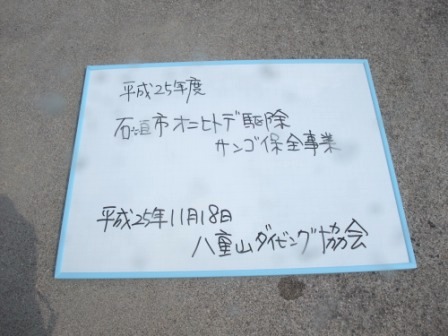 平成25年度
石垣市オニヒトデ駆除
サンゴ保全事業
平成25年11月18日
八重山ダイビング協会